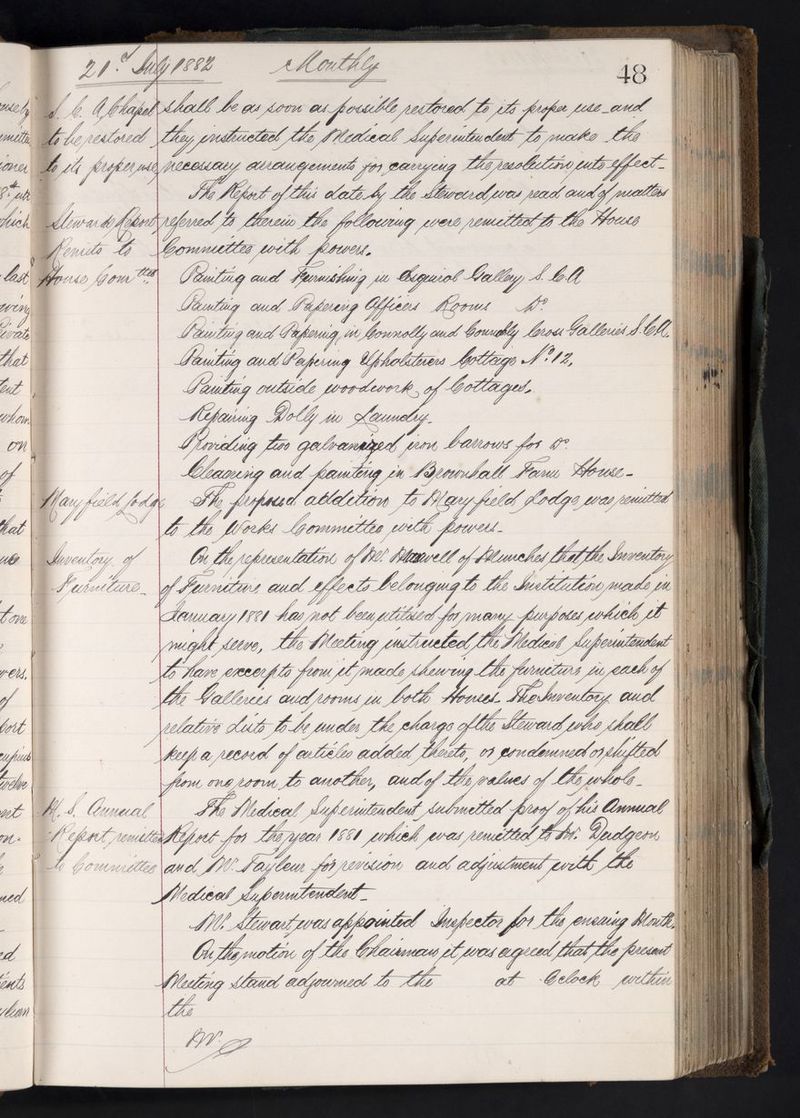 21st July 1882 Monthly 48
S. C. A Chapel shall be as soon as possible restored to its proper use and
to be restored they instructed the Medical Superintendent to make the
to its proper use, necessary arrangements for carrying the resolution into effect_
The Report of this date by the Steward was read and of matters
Stewards Report, referred to therein the following were remitted to the House
Remits to Committee with powers.
House Comttee. Painting and Furnishing in Esquirol Gallery S. C. A
Painting and Papering Officers Rooms Do.
Painting and Papering in Connolly and Connolly Cross Galleries S. C. A.
Painting and Papering Upholsterers Cottage No. 12.
Painting outside woodwork of Cottages.
Repairing Dolly in Laundry.
Providing two galvanized iron barrows for Do.
Cleaning and painting in Brownhall Farm House_
Maryfield Lodge The proposed addition to Maryfield Lodge was remitted
to the Works Committee with powers_
Inventory of On the representation of Mr. Maxwell of Munches that the Inventory
Furniture_ of Furniture and effects belonging to the Institution made in
January 1881 has not been utilised for many purposes which it
might serve, the Meeting instructed the Medical Superintendent
to have excerpts from it made shewing the furniture in each of
the Galleries and rooms in both Houses_ The Inventory and
relative lists to be under the charge of the Steward who shall
keep a record of articles added thereto, or condemned or shifted
from one room to another, and of the values of the whole_
M. S. Annual The Medical Superintendent submitted proof of his Annual
Report remitted Report for the year 1881 which was remitted to Mr. Dudgeon
to Committee and Mr. Tayleur for revision and adjustment with the
Medical Superintendent_
Mr. Stewart was appointed Inspector for the ensuing Month.
On the motion of the Chairman it was agreed that the present
Meeting stand adjourned to the at Oclock within
the